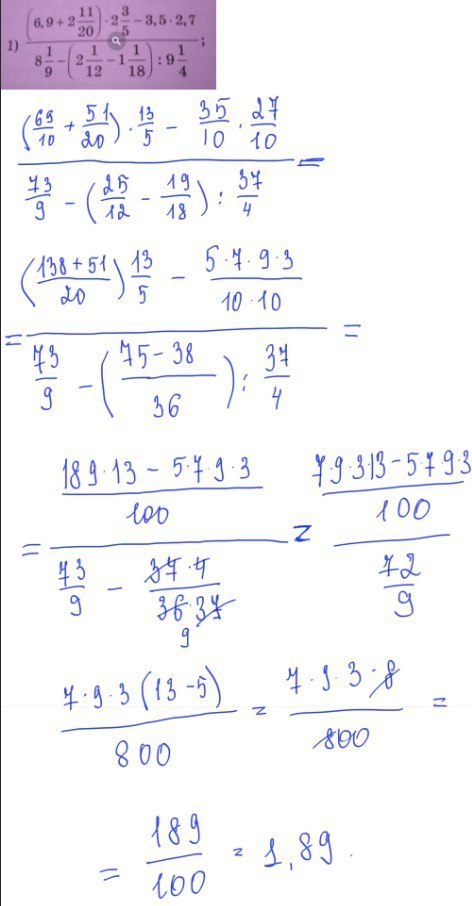 1) \frac{(6,9 + 2\frac{11}{20}) \cdot 2\frac{3}{5} - 3,5 \cdot 2,7}{8\frac{1}{9} - (2\frac{1}{12} - 1\frac{1}{18}) : 9\frac{1}{4}};
\frac{(\frac{69}{10} + \frac{51}{20}) \cdot \frac{13}{5} - \frac{35}{10} \cdot \frac{27}{10}}{\frac{73}{9} - (\frac{25}{12} - \frac{19}{18}) : \frac{37}{4}} =
= \frac{(\frac{138+51}{20}) \frac{13}{5} - \frac{5 \cdot 7 \cdot 9 \cdot 3}{10 \cdot 10}}{\frac{73}{9} - (\frac{75-38}{36}) : \frac{37}{4}} =
= \frac{\frac{189 \cdot 13 - 5 \cdot 7 \cdot 9 \cdot 3}{100}}{\frac{73}{9} - \frac{37 \cdot 4}{36 \cdot 37} 9} = \frac{\frac{7 \cdot 9 \cdot 3 \cdot 13 - 5 \cdot 7 \cdot 9 \cdot 3}{100}}{\frac{72}{9}}
\frac{7 \cdot 9 \cdot 3 (13-5)}{800} = \frac{7 \cdot 9 \cdot 3 \cdot 8}{800} =
= \frac{189}{100} = 1,89.